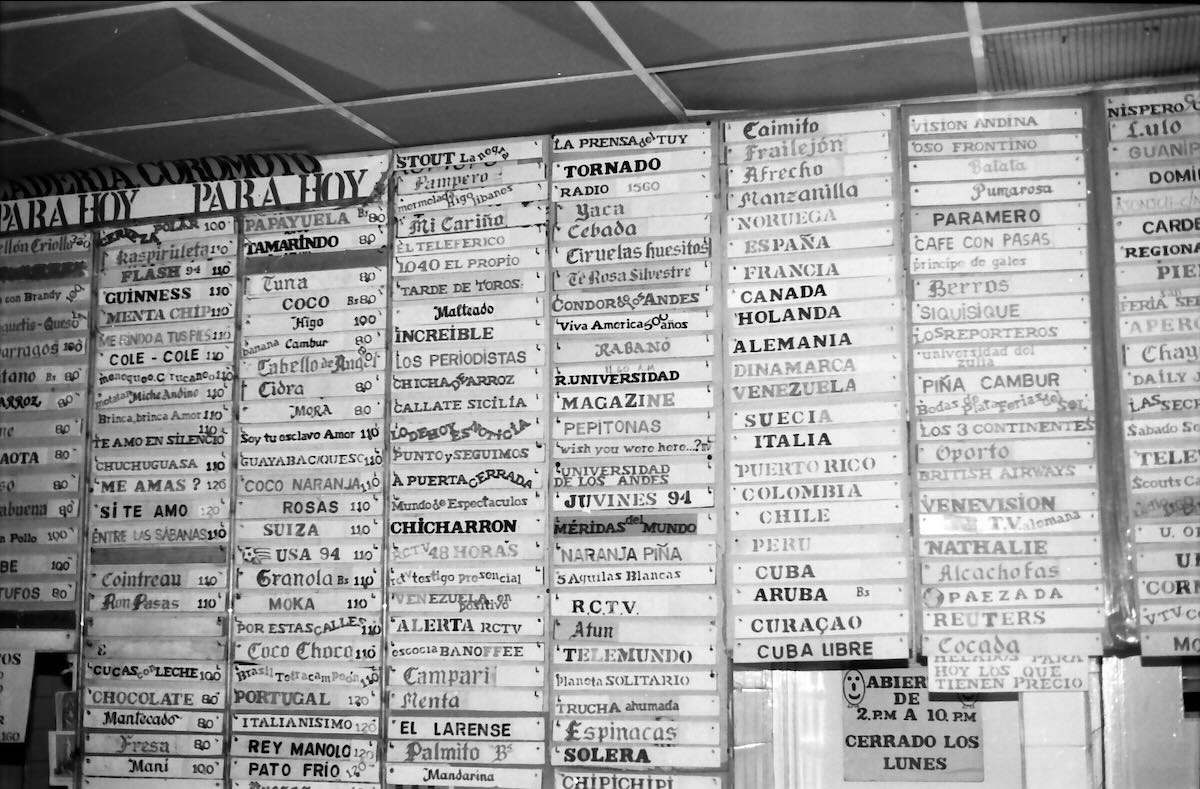 HELADERÍA COROMOTO
PARA HOY PARA HOY
Criollo
con Brandy 100
80
ARROZ 80
80
80
80
80
Pollo 100
100
80
CERVEZA POLAR 100
Raspiruleta 110
FLASH 94 110
GUINNESS 110
MENTA CHIP 110
ME RINDO A TUS PIES 110
COLE - COLE 110
Miche Andino 110
Brinca, brinca Amor 110
110
TE AMO EN SILENCIO
CHUCHUGUASA 110
ME AMAS? 120
SI TE AMO 120
ENTRE LAS SÁBANAS 110
Cointreau 110
Ron Pasas 110
CUCAS con LECHE 100
CHOCOLATE 80
Mantecado 80
Fresa 80
Maní 100
PAPAYUELA Bs 80
TAMARINDO 80
Tuna 80
COCO Bs 80
Higo 100
banana Cambur 80
Cabello de Angel 80
Cidra 80
MORA 80
Soy tu esclavo Amor 110
GUAYABA C/QUESO 110
COCO NARANJA 110
ROSAS 110
SUIZA 110
USA 94 110
Granola Bs 110
MOKA 110
POR ESTAS CALLES 110
Coco Choco 110
Brasil Tetracampeón 110
PORTUGAL 120
ITALIANISIMO 120
REY MANOLO 120
PATO FRÍO 120
STOUT La negra
Pampero
mermelada Higo libanos
Mi Cariño
EL TELEFERICO
1040 EL PROPIO
TARDE DE TOROS
Malteado
INCREIBLE
LOS PERIODISTAS
CHICHA de ARROZ
CALLATE SICILIA
LO DE HOY ES NOTICIA
PUNTO y SEGUIMOS
A PUERTA CERRADA
Mundo de Espectaculos
CHICHARRON
RCTV 48 HORAS
rctv testigo presencial
VENEZUELA en positivo
ALERTA RCTV
escocia BANOFFEE
Campari
Menta
EL LARENSE
Palmito Bs
Mandarina
LA PRENSA del TUY
TORNADO
RADIO 1560
Yaca
Cebada
Ciruelas huesitos
Te Rosa Silvestre
CONDOR de los ANDES
Viva America 500 años
RABANO
R.UNIVERSIDAD
MAGAZINE
PEPITONAS
"wish you were here...?"
UNIVERSIDAD DE LOS ANDES
JUVINES 94
MÉRIDAS del MUNDO
NARANJA PIÑA
5 Aguilas Blancas
R.C.T.V.
Atun
TELEMUNDO
planeta SOLITARIO
TRUCHA ahumada
Espinacas
SOLERA
CHIPICHIPI
Caimito
Frailejón
Afrecho
Manzanilla
NORUEGA
ESPAÑA
FRANCIA
CANADA
HOLANDA
ALEMANIA
DINAMARCA
VENEZUELA
SUECIA
ITALIA
PUERTO RICO
COLOMBIA
CHILE
PERU
CUBA
ARUBA Bs
CURAÇAO
CUBA LIBRE
VISION ANDINA
OSO FRONTINO
Batata
Pumarosa
PARAMERO
CAFE CON PASAS
principe de gales
Berros
SIQUISIQUE
LOS REPORTEROS
universidad del zulia
PIÑA CAMBUR
Bodas de Plata Ferias del SOL
LOS 3 CONTINENTES
Oporto
BRITISH AIRWAYS
VENEVISION
T.V. alemana
NATHALIE
Alcachofas
PAEZADA
REUTERS
Cocada
HELADOS PARA
HOY LOS QUE
TIENEN PRECIO
ABIERTO
DE
2.PM A 10.PM
CERRADO LOS
LUNES
NÍSPERO
Lulo
CARD
REGIONAL
FERIA SE
DAILY
Sabado
TELEV
Scouts
VTV